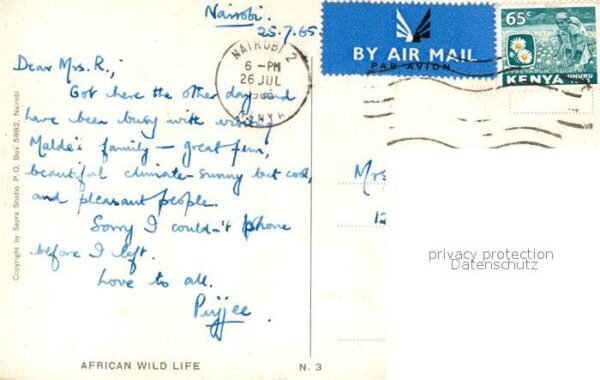 Nairobi.
25.7.65
Dear Mrs. R.,
Got here the other day and
have been busy with
Malde's family – great fun,
beautiful climate – sunny but cool,
and pleasant people.
Sorry I couldn't phone
before I left.
Love to all.
AFRICAN WILD LIFE
N. 3
Copyright by Sapra Studio P.O. Box 5882, Nairobi
NAIROBI 2
6 - PM
26 JUL
KENYA
BY AIR MAIL
PAR AVION
65c
PYRETHRUM INDUSTRY
UHURU
KENYA
Mrs
12
privacy protection
Datenschutz